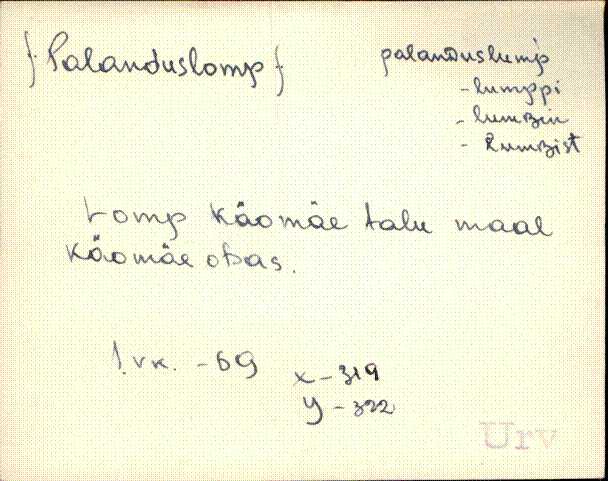 {Palanduslomp}
palanduslump
- lumppi
- lumBin
- lumBist
Lomp Käomäe talu maal
Käomäe otsas.
1. vk. - 69
x - 319
y - 322
Urv